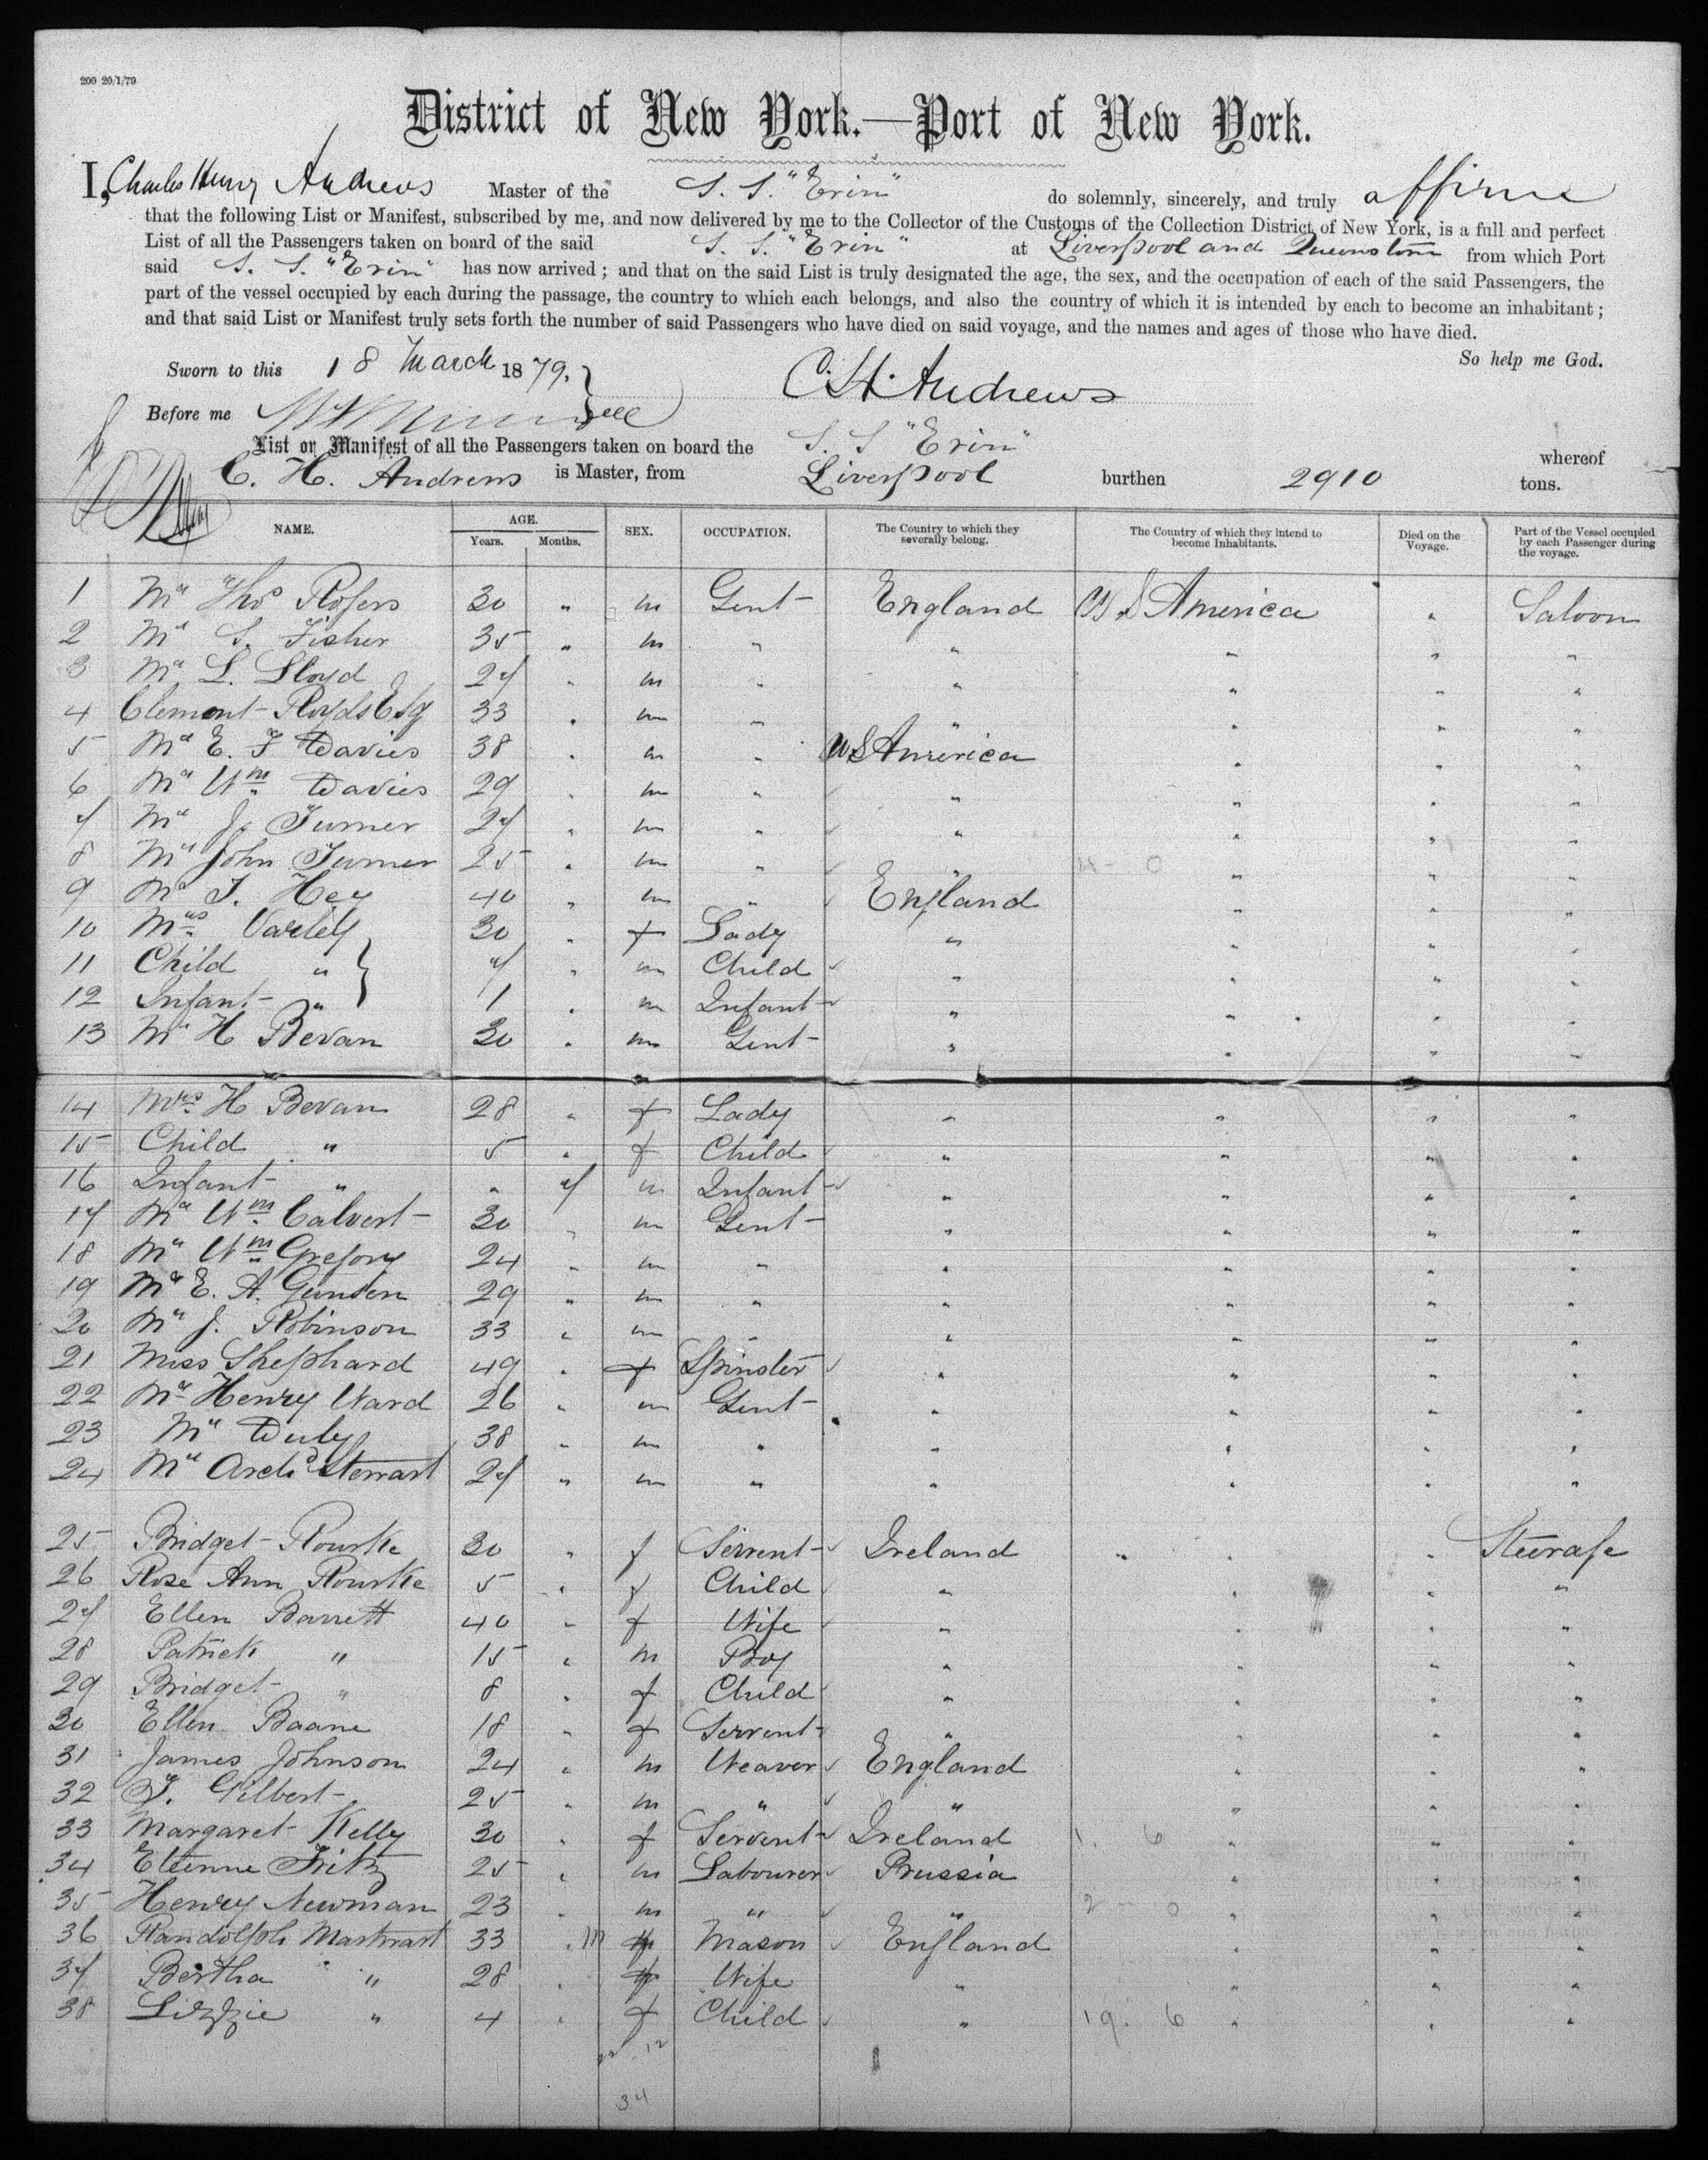 200 20/1/79
District of New York.—Port of New York.
I, Charles Henry Andrews Master of the S. S. "Erin" do solemnly, sincerely, and truly affirm
that the following List or Manifest, subscribed by me, and now delivered by me to the Collector of the Customs of the Collection District of New York, is a full and perfect
List of all the Passengers taken on board of the said S. S. "Erin" at Liverpool and Queenstown from which Port
said S. S. "Erin" has now arrived; and that on the said List is truly designated the age, the sex, and the occupation of each of the said Passengers, the
part of the vessel occupied by each during the passage, the country to which each belongs, and also the country of which it is intended by each to become an inhabitant;
and that said List or Manifest truly sets forth the number of said Passengers who have died on said voyage, and the names and ages of those who have died.
So help me God.
Sworn to this 18 March 1879.
C. H. Andrews
Before me
List or Manifest of all the Passengers taken on board the S. S "Erin" whereof
C. H. Andrews is Master, from Liverpool burthen 2910 tons.
NAME. AGE. Years. Months. SEX. OCCUPATION. The Country to which they severally belong. The Country of which they intend to become Inhabitants. Died on the Voyage. Part of the Vessel occupied by each Passenger during the voyage.
1 Mr Thos Rogers 30 " m Gent England U S America " Saloon
2 Mr S. Fisher 35 " m " " " " "
3 Mr L. Lloyd 27 " m " " " " "
4 Clement Royds Esq 33 " m " " " " "
5 Mr E. F Davies 38 " m " U S America " " "
6 Mr Wm Davies 29 " m " " " " "
7 Mr J. Turner 27 " m " " " " "
8 Mr John Turner 25 " m " " " " "
9 Mr T. Hey 40 " m " England " " "
10 Mrs Varley 30 " f Lady " " " "
11 Child " 7 " m Child " " " "
12 Infant " 1 " m Infant " " " "
13 Mr H Bevan 30 " m Gent " " " "
14 Mrs H Bevan 28 " f Lady " " " "
15 Child " 5 " f Child " " " "
16 Infant " " 7 m Infant " " " "
17 Mr Wm Calvert 30 " m Gent " " " "
18 Mr Wm Gregory 24 " m " " " " "
19 Mr E. A. Gunson 29 " m " " " " "
20 Mr J. Robinson 33 " m " " " " "
21 Miss Shephard 49 " f Spinster " " " "
22 Mr Henry Ward 26 " m Gent " " " "
23 Mr Duly 38 " m " " " " "
24 Mr Archd Stewart 27 " m " " " " "
25 Bridget Rourke 30 " f Servent Ireland " " " Steerage
26 Rose Ann Rourke 5 " f Child " " " "
27 Ellen Barrett 40 " f Wife " " " "
28 Patrick " 15 " m Boy " " " "
29 Bridget " 8 " f Child " " " "
30 Ellen Baane 18 " f Servent " " " "
31 James Johnson 24 " m Weaver England " " "
32 T. Gilbert 25 " m " " " " "
33 Margaret Kelly 30 " f Servent Ireland " " "
34 Etienne Fritz 25 " m Labourer Prussia " " "
35 Henry Newman 23 " m " " " " "
36 Randolph 33 " m Mason England " " "
37 Bertha " 28 " f Wife " " " "
38 Lizzie " 4 " f Child " 19. 6 " " "
34